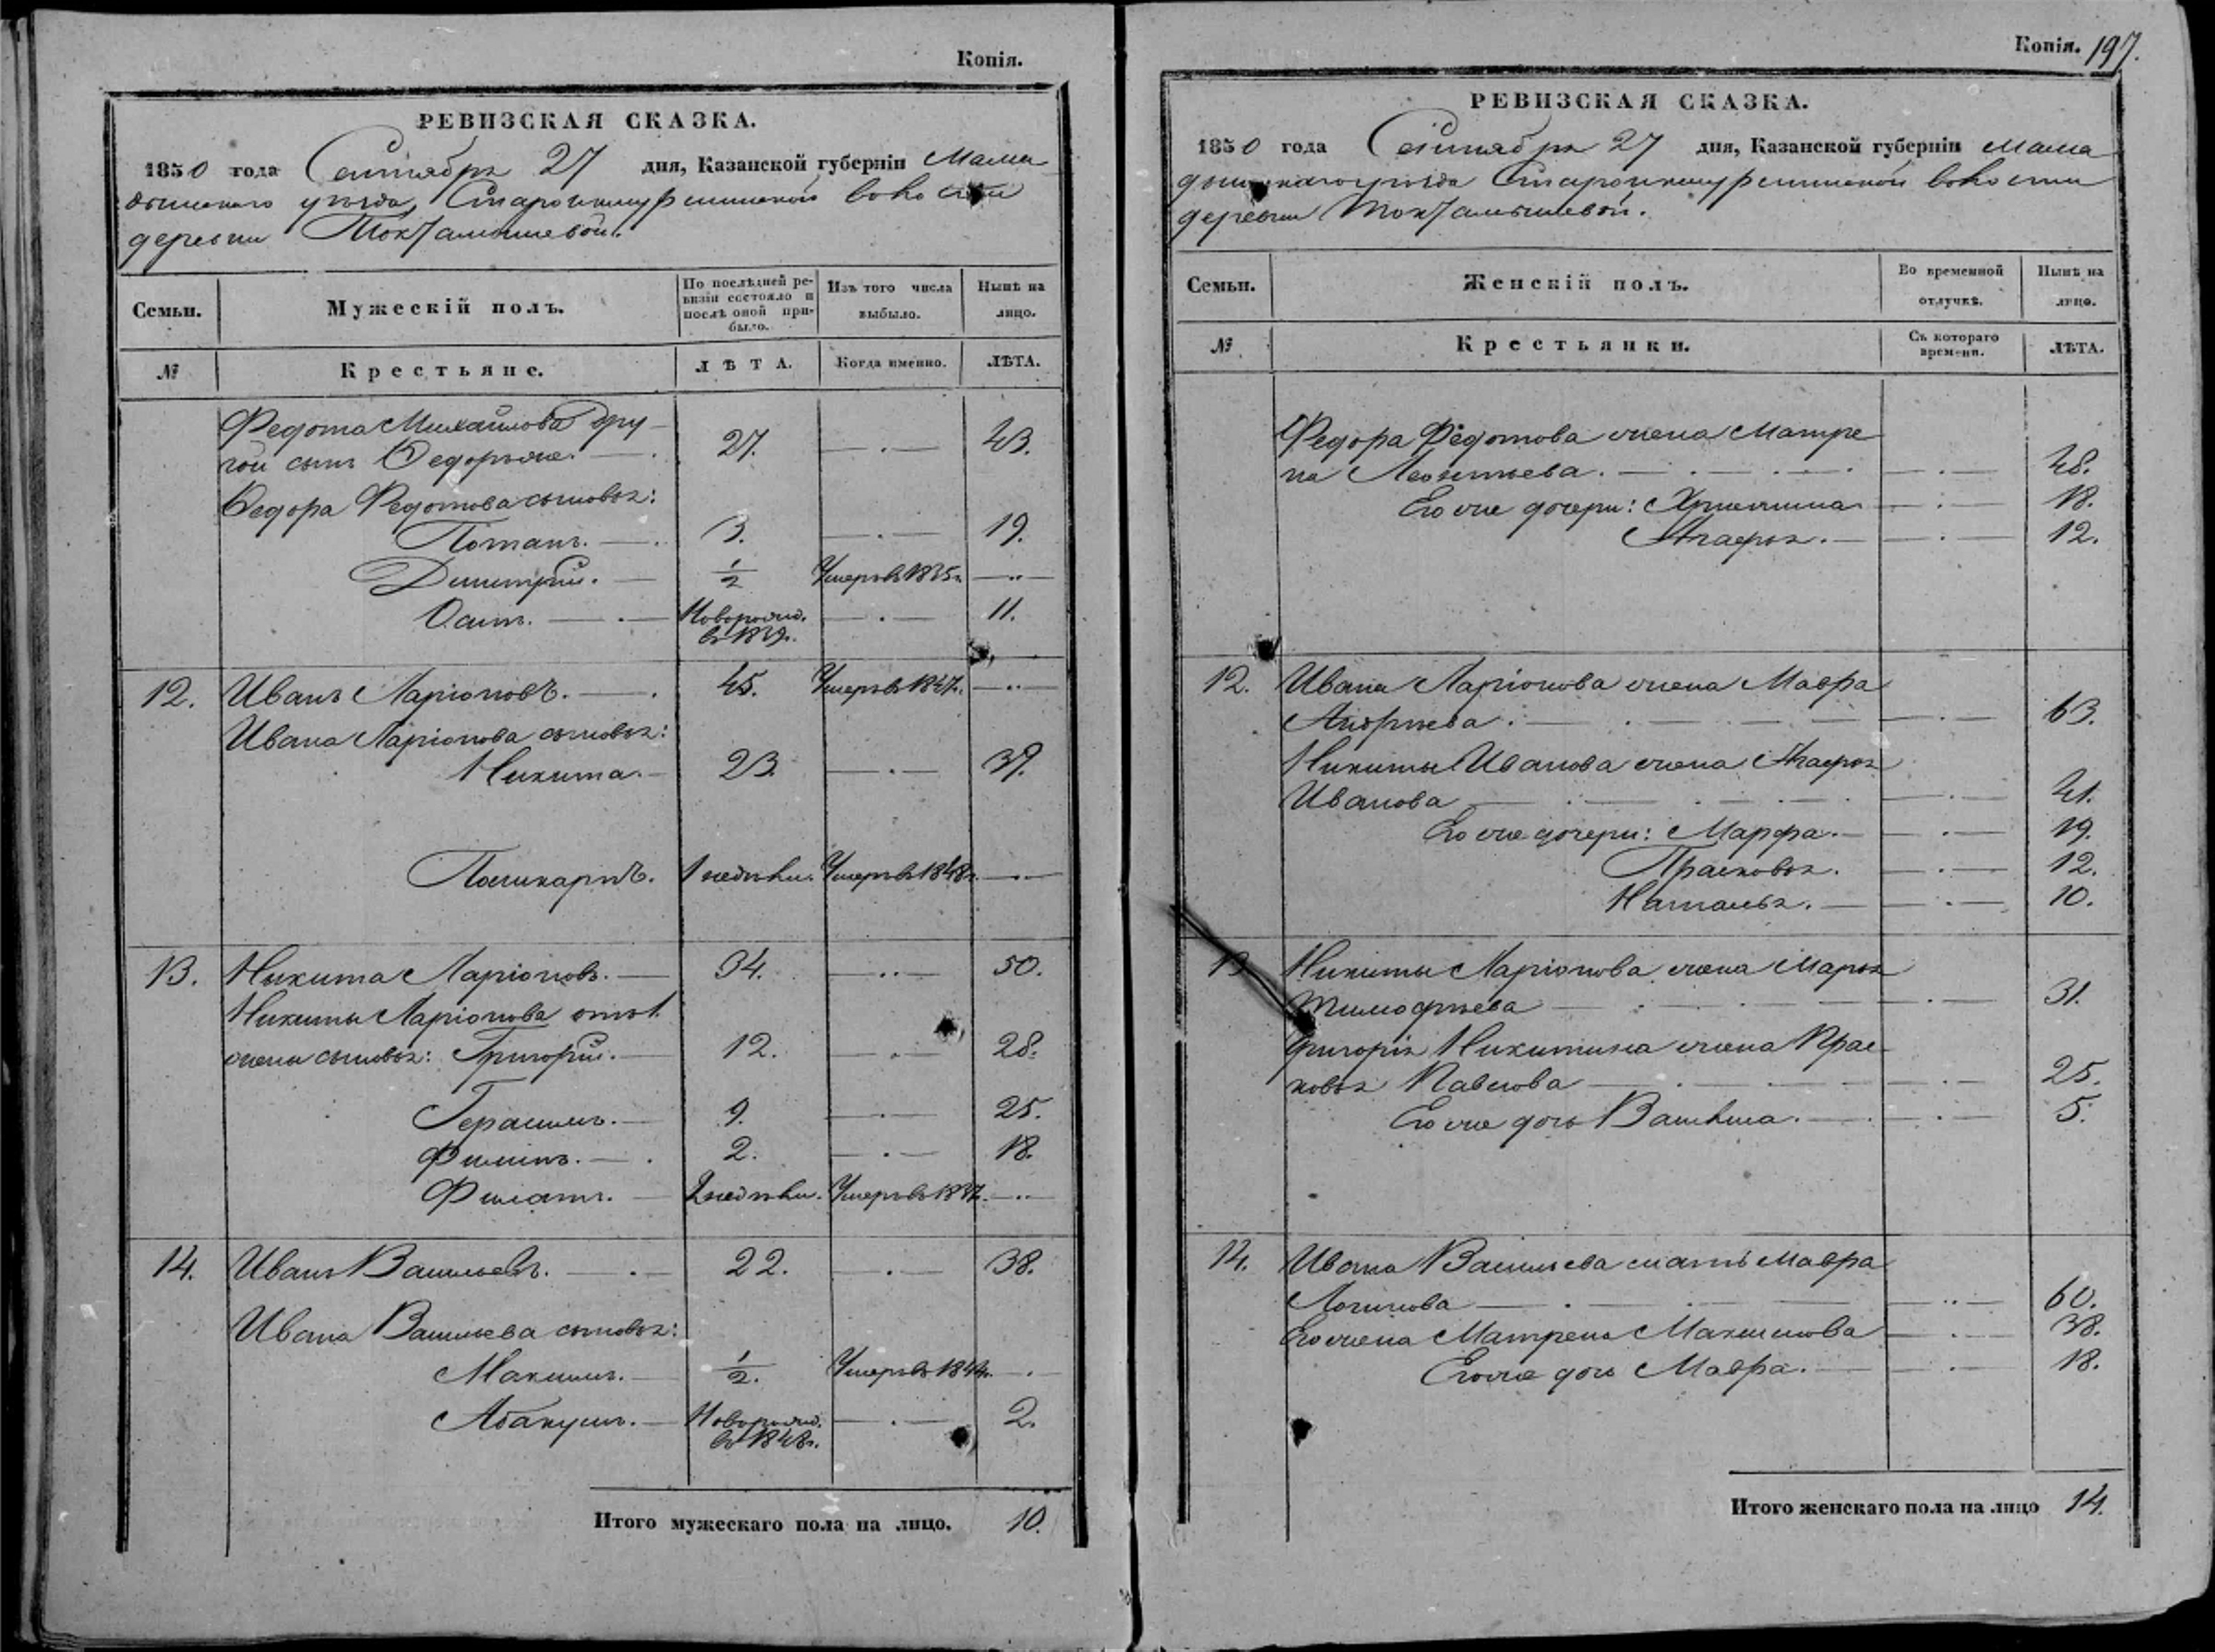 Копія.
РЕВИЗСКАЯ СКАЗКА.
1850 года Сентября 27 дня, Казанской губерніи Мама
дышскаго уѣзда, волости
деревни Токтамышевой.
Семьи.
Мужескій полъ.
По послѣдней ре-
визіи состояло и
послѣ оной при-
было.
Изъ того числа
выбыло.
Нынѣ на
лицо.
№
Крестьяне.
ЛѢТА.
Когда именно.
ЛѢТА.
Федота Михайлова дру-
гой сынъ Ѳедоръ 27. 43.
Ѳедора Федотова сыновья:
Потапъ. 3. 19.
Димитрій. 1/2 Умеръ въ 1835г.
Осипъ. Новорожд. 11.
въ 1839г.
12. Иванъ Ларіоновъ. 45. Умеръ въ 1847г.
Ивана Ларіонова сыновья:
Никита. 23. 39.
Поликарпъ. 1 недѣли. Умеръ въ 1848г.
13. Никита Ларіоновъ. 34. 50.
Никиты Ларіонова отъ 1
жены сыновья: Григорій. 12. 28.
Герасимъ. 9. 25.
Филипъ. 2. 18.
Филатъ. 2 недѣли. Умеръ въ 1837.
14. Иванъ Васильевъ. 22. 38.
Ивана Васильева сыновья:
Максимъ. 1/2. Умеръ въ 1844г.
Абакумъ. Новорожд. 2.
въ 1848г.
Итого мужескаго пола на лицо. 10.
Копія. 197.
РЕВИЗСКАЯ СКАЗКА.
1850 года Сентября 27 дня, Казанской губерніи Мама
дышскаго уѣзда волости
деревни Токтамышевой.
Семьи.
Женскій полъ.
Во временной
отлучкѣ.
Нынѣ на
лицо.
№
Крестьянки.
Съ котораго
времени.
ЛѢТА.
Федора Федотова жена Матре
на Леонтьева. 48.
Его же дочери: Христина 18.
Агафья. 12.
12. Ивана Ларіонова жена Мавра
Андрѣева. 63.
Никиты Иванова жена Агафья
Иванова 41.
Его же дочери: Марфа. 19.
Прасковья. 12.
Наталья. 10.
13 Никиты Ларіонова жена Марья
Тимофѣева 31.
Григорія Никитина жена Прас-
ковья Павлова 25.
Его же дочь 5.
14. Ивана Васильева мать Мавра
Логинова 60.
Его жена Матрена Максимова 38.
Его же дочь Мавра. 18.
Итого женскаго пола на лицо 14.